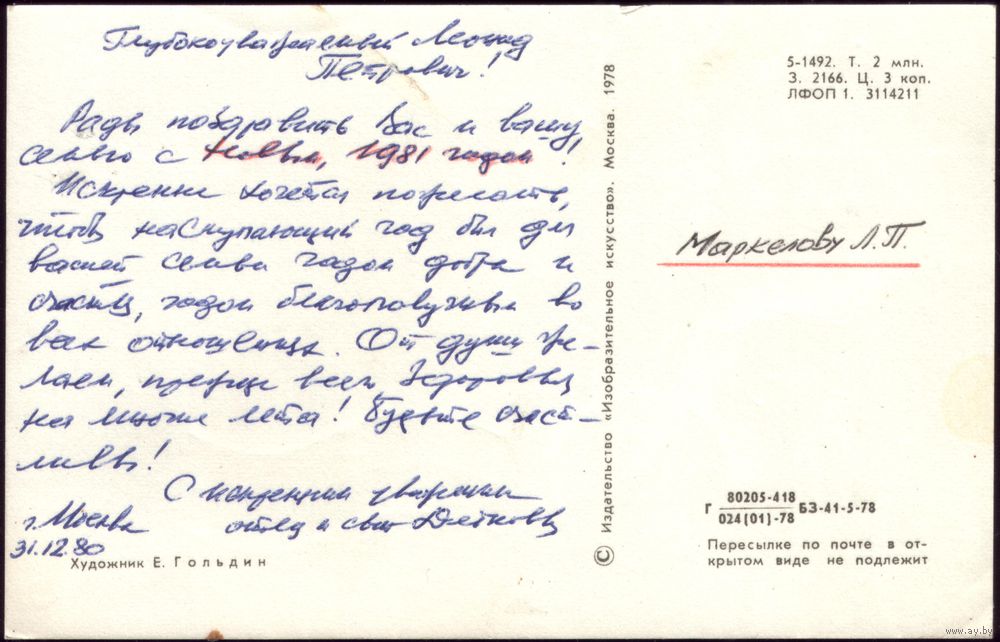 Глубокоуважаемый Леонид
Петрович!
Рады поздравить Вас и вашу
семью с Новым, 1981 годом!
Искренне хочется пожелать,
чтобы наступающий год был для
вашей семьи годом добра и
счастья, годом благополучным во
всех отношениях. От души же-
лаем, прежде всего, здоровья
на многие лета! Будьте счаст-
ливы!
С искренним уважением
отец и сын
г. Москва
31.12.80
Художник Е. Гольдин
© Издательство «Изобразительное искусство». Москва. 1978
5-1492. Т. 2 млн.
З. 2166. Ц. 3 коп.
ЛФОП 1. 3114211
Маркелову Л.П.
Г 80205-418 БЗ-41-5-78
024(01)-78
Пересылке по почте в от-
крытом виде не подлежит
www.ay.by